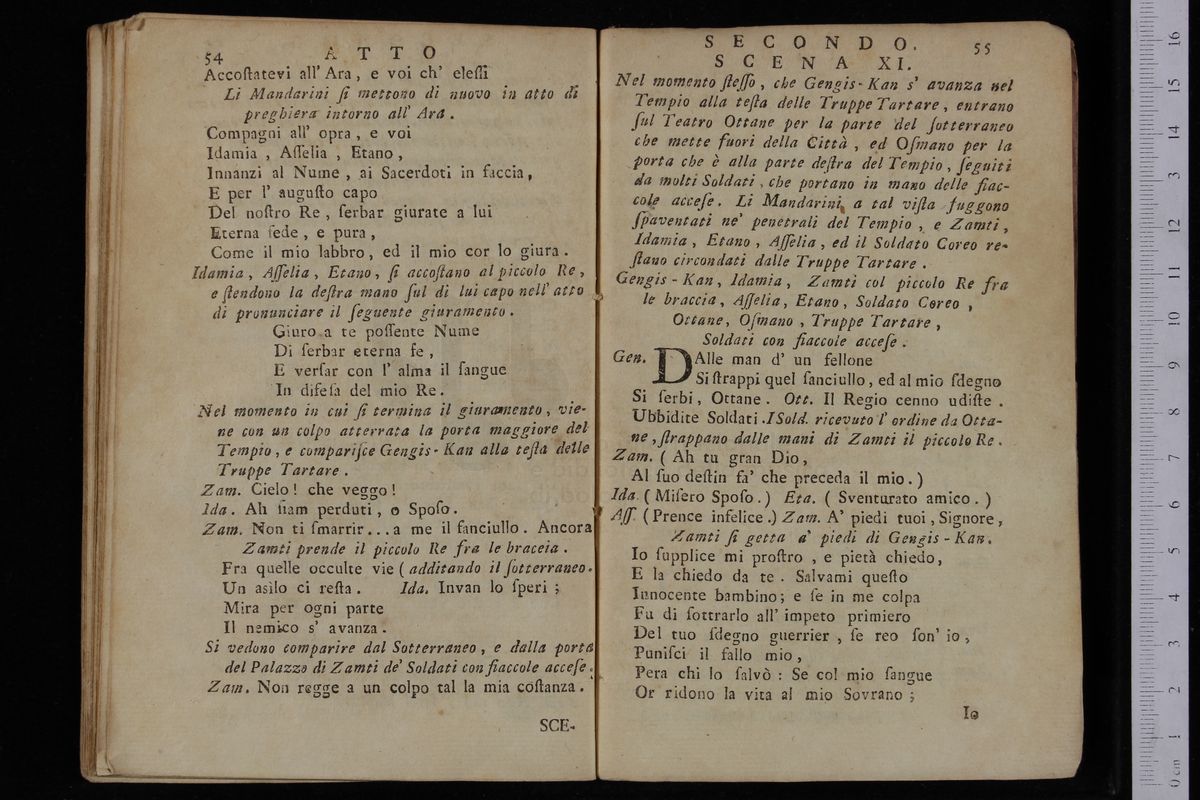 54 ATTO
Accoſtatevi all' Ara, e voi ch' eleſſi
Li Mandarini ſi mettono di nuovo in atto di
preghiera intorno all' Ara.
Compagni all' opra, e voi
Idamia, Aſſelia, Etano,
Innanzi al Nume, ai Sacerdoti in faccia,
E per l' auguſto capo
Del noſtro Re, ſerbar giurate a lui
Eterna fede, e pura,
Come il mio labbro, ed il mio cor lo giura.
Idamia, Aſſelia, Etano, ſi accoſtano al piccolo Re,
e ſtendono la deſtra mano ſul di lui capo nell' atto
di pronunciare il ſeguente giuramento.
Giuro a te poſſente Nume
Di ſerbar eterna fe,
E verſar con l' alma il ſangue
In difeſa del mio Re.
Nel momento in cui ſi termina il giuramento, vie-
ne con un colpo atterrata la porta maggiore del
Tempio, e compariſce Gengis-Kan alla teſta delle
Truppe Tartare.
Zam. Cielo! che veggo!
Ida. Ah ſiam perduti, o Spoſo.
Zam. Non ti ſmarrir... a me il fanciullo. Ancora
Zamti prende il piccolo Re fra le braccia.
Fra quelle occulte vie (additando il ſotterraneo.
Un asilo ci reſta. Ida. Invan lo ſperi;
Mira per ogni parte
Il nemico s' avanza.
Si vedono comparire dal Sotterraneo, e dalla porta
del Palazzo di Zamti de' Soldati con fiaccole acceſe.
Zam. Non regge a un colpo tal la mia coſtanza.
SCE-
SECONDO. 55
SCENA XI.
Nel momento ſteſſo, che Gengis-Kan s' avanza nel
Tempio alla teſta delle Truppe Tartare, entrano
ſul Teatro Ottane per la parte del ſotterraneo
che mette fuori della Città, ed Oſmano per la
porta che è alla parte deſtra del Tempio, ſeguiti
da molti Soldati, che portano in mano delle fiac-
cole acceſe. Li Mandarini a tal viſta fuggono
ſpaventati ne' penetrali del Tempio, e Zamti,
Idamia, Etano, Aſſelia, ed il Soldato Coreo re-
ſtano circondati dalle Truppe Tartare.
Gengis-Kan, Idamia, Zamti col piccolo Re fra
le braccia, Aſſelia, Etano, Soldato Coreo,
Ottane, Oſmano, Truppe Tartare,
Soldati con fiaccole acceſe.
Gen. DAlle man d' un fellone
Si ſtrappi quel fanciullo, ed al mio ſdegno
Si ſerbi, Ottane. Ott. Il Regio cenno udiſte.
Ubbidite Soldati. I Sold. ricevuto l' ordine da Otta-
ne, ſtrappano dalle mani di Zamti il piccolo Re.
Zam. (Ah tu gran Dio,
Al ſuo deſtin fa' che preceda il mio.)
Ida. (Miſero Spoſo.) Eta. (Sventurato amico.)
Aſſ. (Prence infelice.) Zam. A' piedi tuoi, Signore,
Zamti ſi getta a' piedi di Gengis-Kan.
Io ſupplice mi proſtro, e pietà chiedo,
E la chiedo da te. Salvami queſto
Innocente bambino; e ſe in me colpa
Fu di ſottrarlo all' impeto primiero
Del tuo ſdegno guerrier, ſe reo ſon' io,
Puniſci il fallo mio,
Pera chi lo ſalvò: Se col mio ſangue
Or ridono la vita al mio Sovrano;
Io
16
15
14
13
12
11
10
9
8
7
6
5
4
3
2
1
0 cm